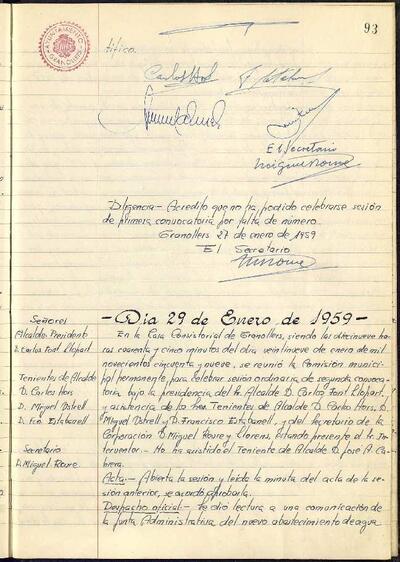 93
AYUNTAMIENTO
GRANOLLERS
tifico.
El Secretario
Diligencia.- Acredito que no ha podido celebrarse sesión
de primera convocatoria por falta de número.
Granollers 27 de enero de 1959
El Secretario
Señores
Alcalde Presidente
D. Carlos Font Llopart
Tenientes de Alcalde
D. Carlos Hors
D. Miguel Ustrell
D. Fco Estabanell
Secretario
D. Miguel Roure
- Dia 29 de Enero de 1959 -
En la Casa Consistorial de Granollers, siendo las diecinueve ho-
ras cuarenta y cinco minutos del dia veintinueve de enero de mil
novecientos cincuenta y nueve, se reunió la Comisión munici-
pal permanente, para celebrar sesión ordinaria de segunda convoca-
toria bajo la presidencia del Sr. Alcalde D. Carlos Font Llopart,
y asistencia de los Sres. Tenientes de Alcalde D. Carlos Hors, D.
Miguel Ustrell y D. Francisco Estabanell, y del secretario de la
Corporación D. Miguel Roure y Clarens. Estando presente el Sr. In-
terventor.- No ha asistido el Teniente de Alcalde D. José A. Ca-
brera.
Acta.- Abierta la sesión y leída la minuta del acta de la se-
sión anterior, se acordó aprobarla.
Despacho oficial.- Se dio lectura a una comunicación de
la Junta Administrativa del nuevo abastecimiento de agua